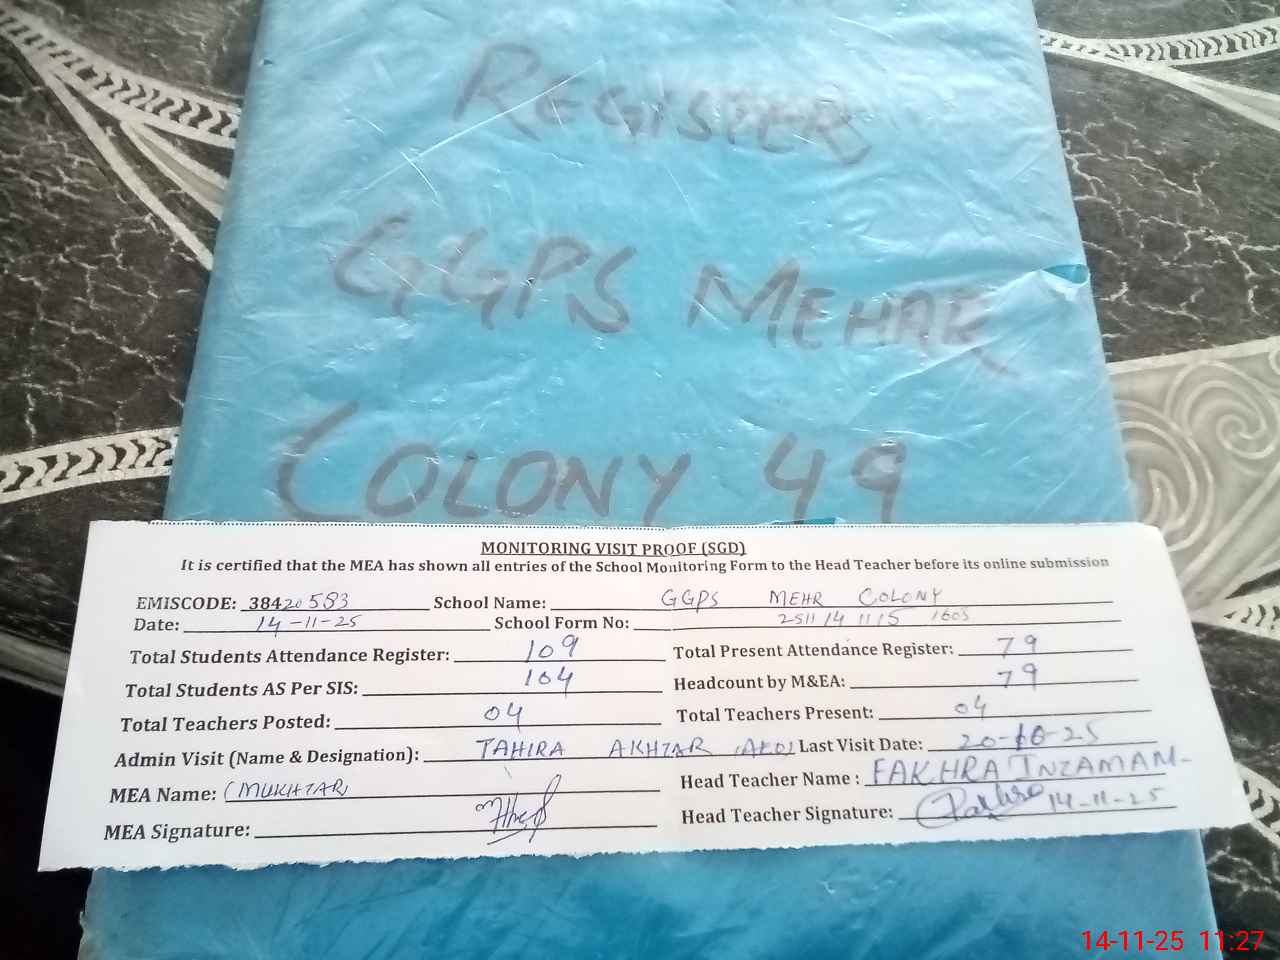 REGISTER
GGPS MEHAR
COLONY 49
MONITORING VISIT PROOF (SGD)
It is certified that the MEA has shown all entries of the School Monitoring Form to the Head Teacher before its online submission
EMISCODE: 38420583 School Name: GGPS MEHR COLONY
Date: 14-11-25 School Form No: 2511 14 11 15 1603
Total Students Attendance Register: 109 Total Present Attendance Register: 79
Total Students AS Per SIS: 104 Headcount by M&EA: 79
Total Teachers Posted: 04 Total Teachers Present: 04
Admin Visit (Name & Designation): TAHIRA AKHTAR (AEO) Last Visit Date: 20-10-25
MEA Name: (MUKHTAR) Head Teacher Name : FAKHRA INZAMAM-
MEA Signature: Head Teacher Signature: 14-11-25
14-11-25 11:27